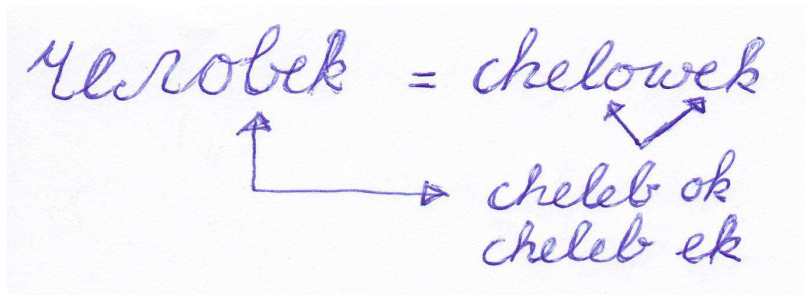 человек = chelowek
cheleb ok
cheleb ek